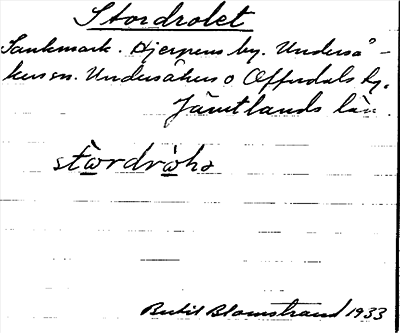 Stordrolet
Sankmark. Hjerpens by. Underså-
kers sn. Undersåkers o Offerdals tg.
Jämtlands län.
stordroha
Bertil Blomstrand 1933